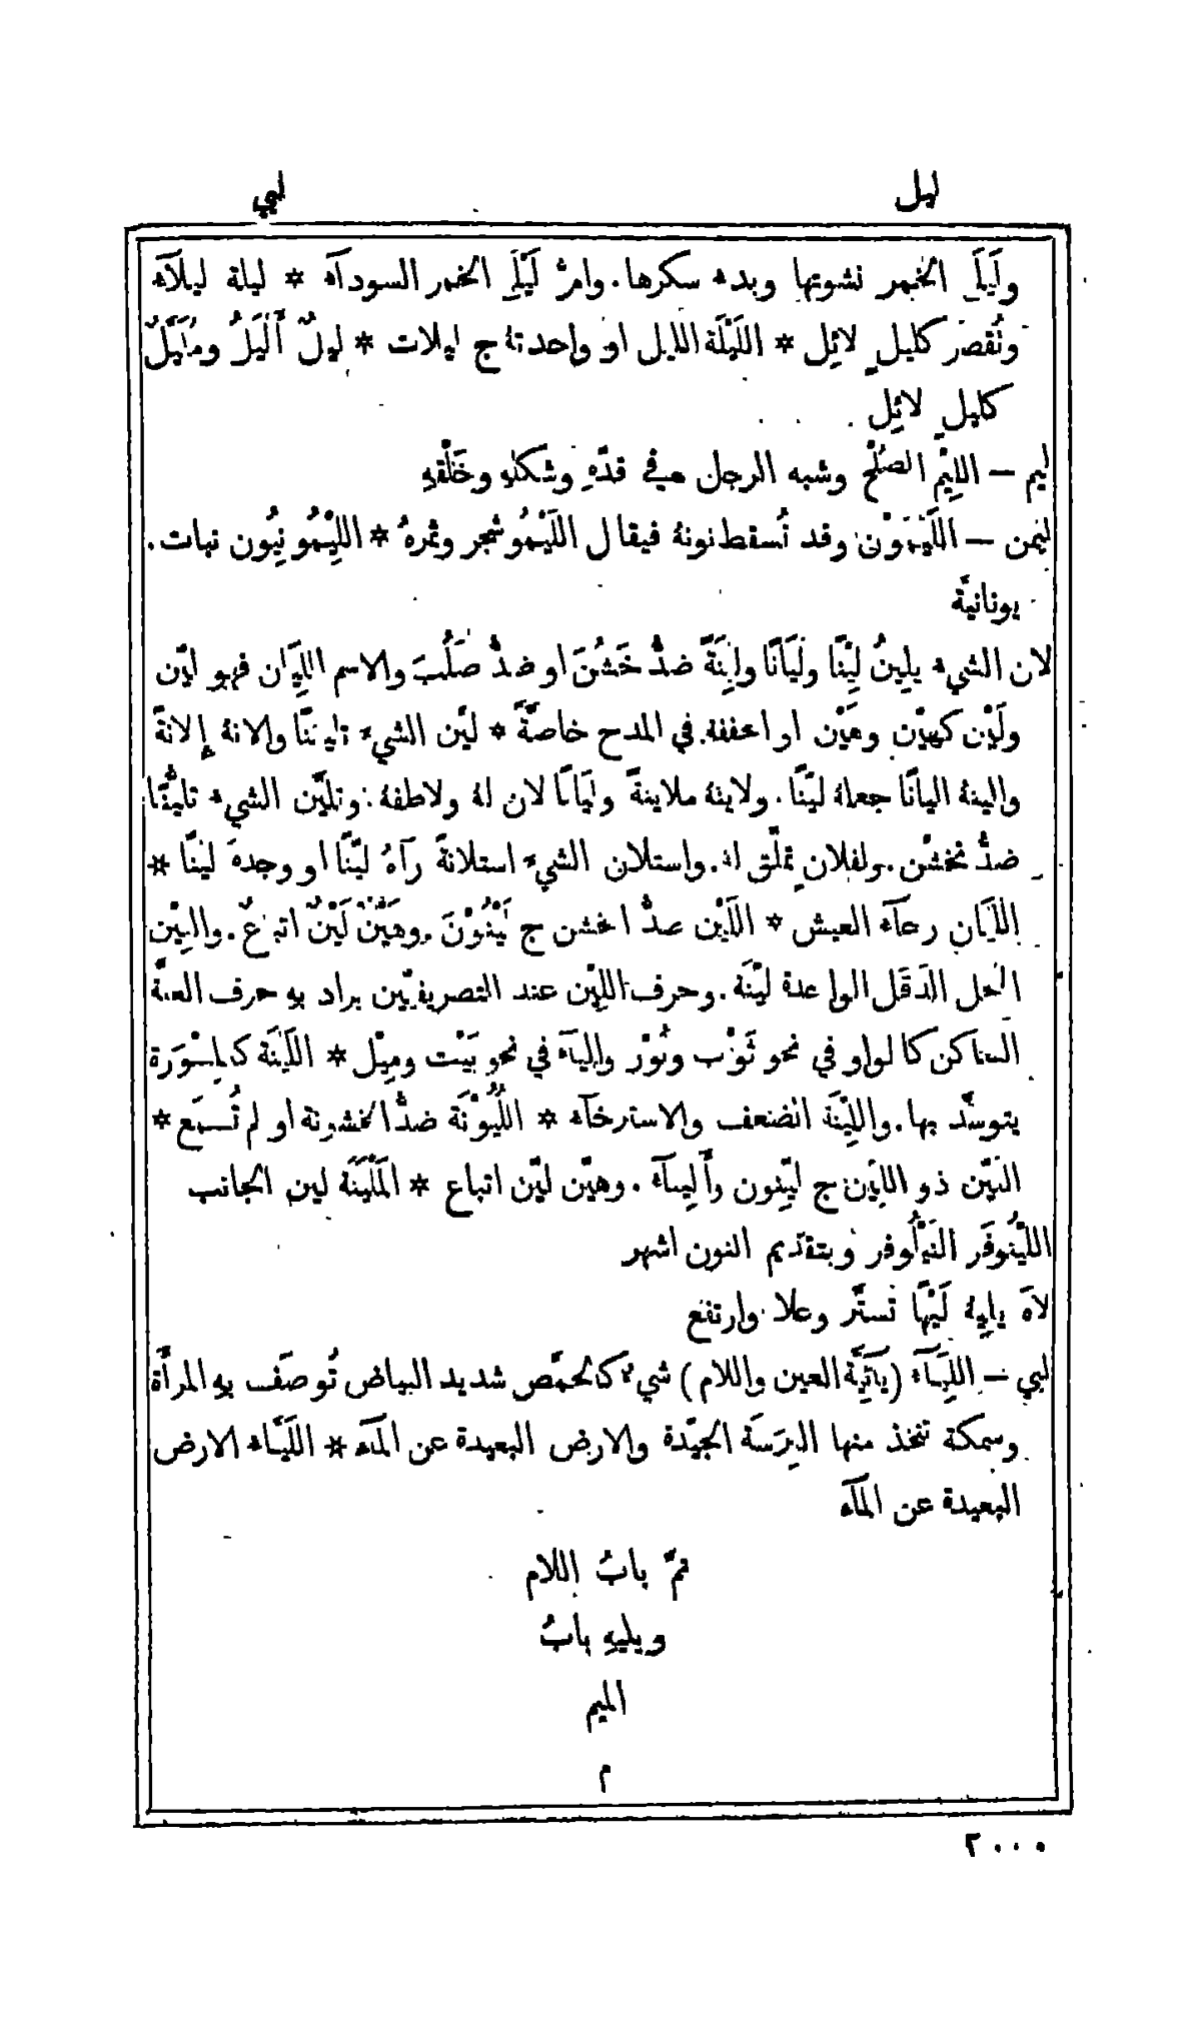 ليل
ليي
ولَيلَى الخمر نشوتها وبدء سكرها. وامُّ لَيْلَى الخمر السودآء * ليلة ليلآء
وتُقصَر كليلٍ لائِل * اللَيْلَة الليل او واحدتهُ ج ليلات * ليلٌ أَلْيَلُ ومُلَيَّلٌ
كليلٍ لائِل
ليم – اللِيْم الصُلْح وشبه الرجل في قدّهِ وشكلهِ وخَلْقهِ
ليمن – اللَيْمَوْن وقد تُسقط نونهُ فيقال اللَيْمُو شجر وثمرهُ * اللِيْمُونِيُون نبات.
يونانيَّة
لان الشيء يلِينُ لِيْنًا ولَيَانًا ولِيْنَةً ضدُّ خَشُنَ او ضدُّ صَلُبَ والاسم اللِيَان فهو ليّن
ولَيْن كهيّن وهَيْن او المخففة في المدح خاصَّةً * ليَّن الشيء تليينًا والانهُ إلانةً
والينهُ اليانًا جعلهُ ليّنًا. ولاينهُ ملاينةً ولِيَانًا لان لهُ ولاطفهُ. وتليَّن الشيء تليُّنًا
ضدُّ تخشَّن. ولفلانٍ تملَّق لهُ. واستلان الشيء استلانةً رآهُ ليّنًا او وجدهُ ليّنًا *
اللَيَان رخآء العيش * اللَيْن ضدُّ الخشن ج لَيْنُوْنَ. وهَيْنٌ لَيْنٌ اتباعٌ. واللِيْن
النخل الدَقَل الواحدة لِيْنَة. وحرف اللِيْن عند التصريفيّين يراد بهِ حرف العلَّة
الساكن كالواو في نحو ثَوْب ونُوْر واليآء في نحو بَيْت ومِيْل * اللَيْنَة كالمِسْوَرة
يتوسَّد بها. واللِيْنَة الضعف والاسترخآء * اللُيُوْنَة ضدُّ الخشونة او لم تُسمَع *
الليّن ذو اللِيْن ج ليّنون وأَلْيِنآء. وهيّن ليّن اتباع * المَلْيَنَة لين الجانب
اللِيْنُوفَر النَيْلُوفر وبتقديم النون اشهر
لاهَ يلِيهُ لَيْهًا تستَّر وعلا وارتفع
ليي – اللِيَآء (يآئيَّة العين واللام) شيءٌ كالحمَّص شديد البياض تُوصَف بهِ المرأَة
وسمكة تتخذ منها التِرَسَة الجيّدة والارض البعيدة عن المآء * اللَيَّآء الارض
البعيدة عن المآء
تمَّ بابُ اللام
ويليهِ بابُ
الميم
م
٢٠٠٠